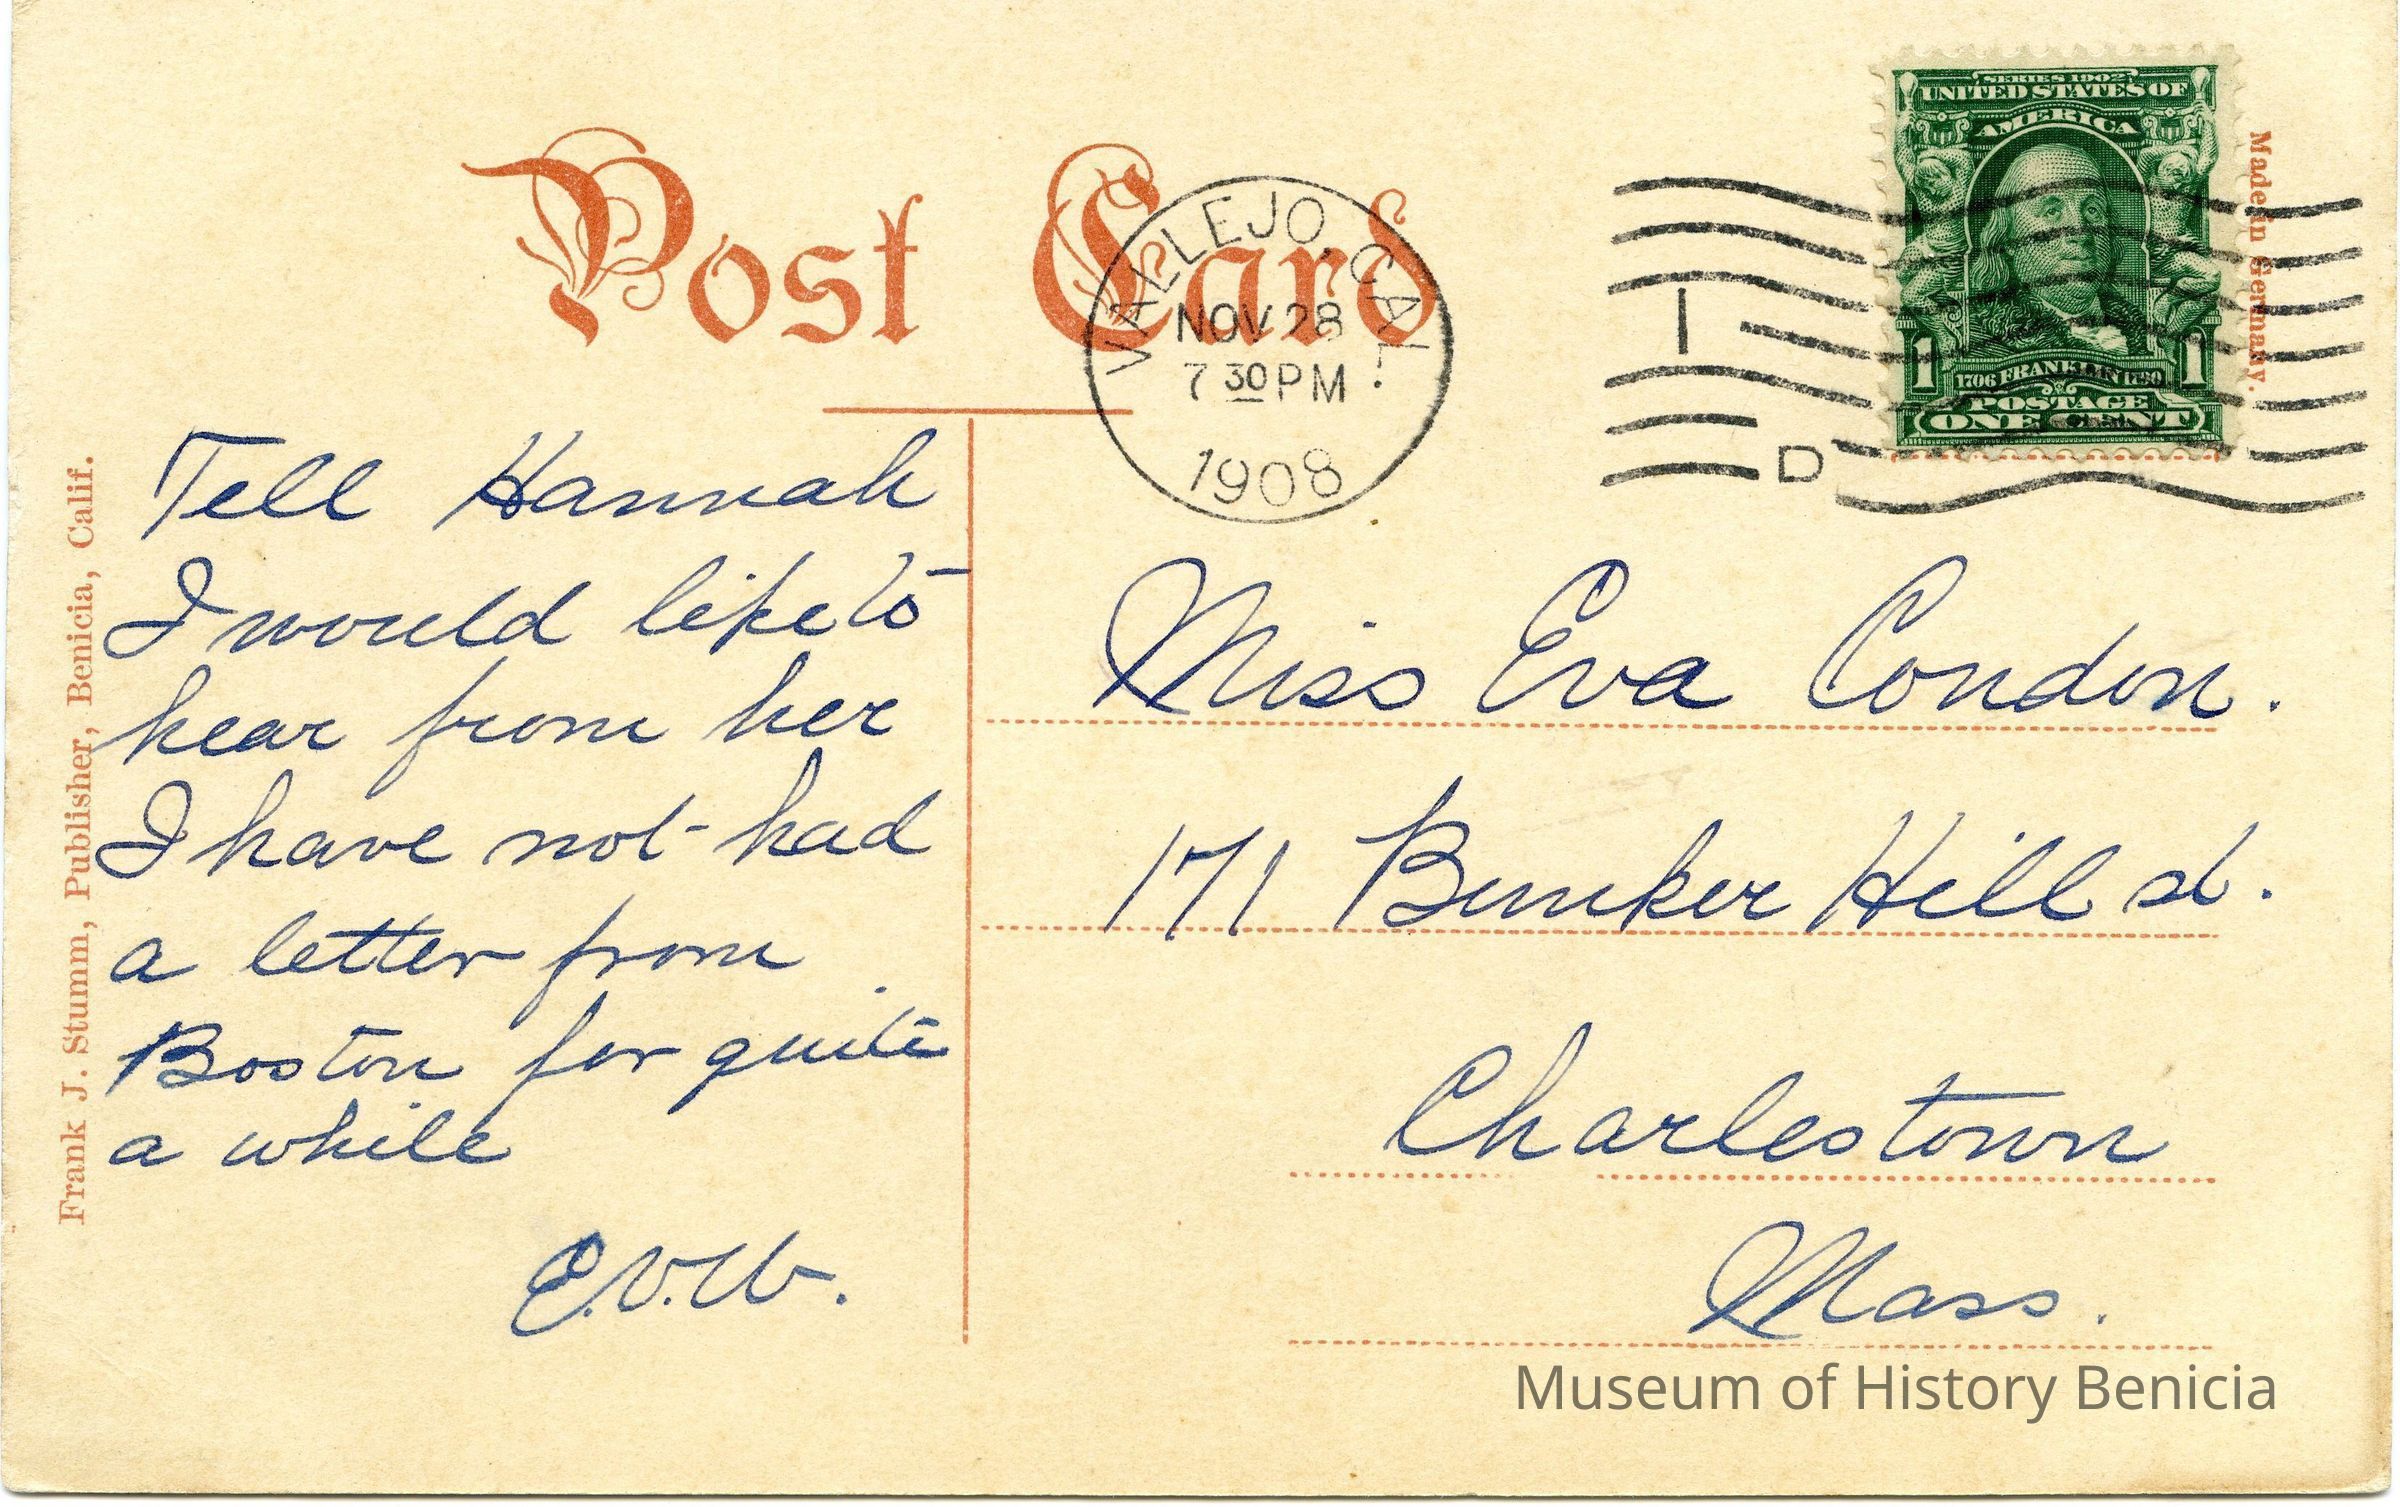 Post Card
VALLEJO, CAL.
NOV 28
7 30 PM
1908
I
D
SERIES 1902
UNITED STATES OF
AMERICA
1 1
1706 FRANKLIN 1790
POSTAGE
ONE CENT
Made in Germany.
Frank J. Stumm, Publisher, Benicia, Calif.
Tell Hannah
I would like to
hear from her
I have not had
a letter from
Boston for quite
a while
E.V.W.
Miss Eva Condon.
171 Bunker Hill st.
Charlestown
Mass.
Museum of History Benicia